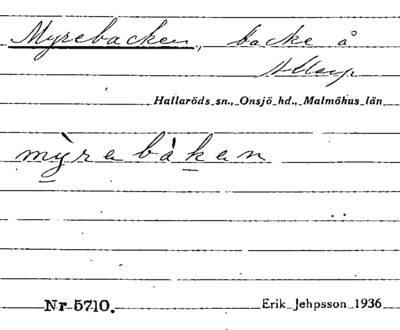 Myrebacken, backe å
Hallaröds sn., Onsjö hd., Malmöhus län
mỳrabàkan
Nr 5710.
Erik Jehpsson 1936